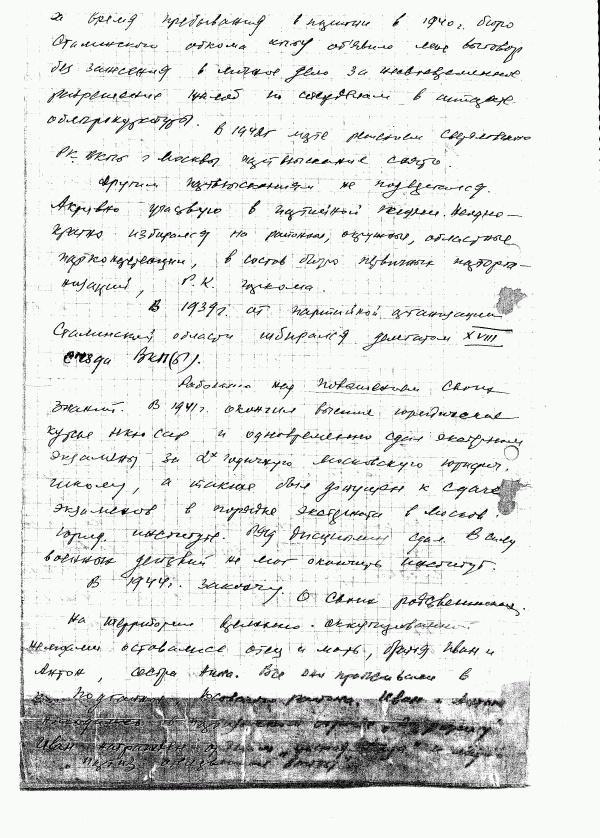 За время пребывания в партии в 1940 г. бюро
Сталинского обкома КП(б)У объявило мне выговор
без занесения в личное дело за несвоевременное
разрешение жалоб по следделам в аппарате
облпрокуратуры.
В 1942 г. марте решением Свердловского
РК ВКП(б) г. Москвы партвзыскание снято.
Другим партвзысканиям не подвергался.
Активно участвую в партийной жизни. Неодно-
кратно избирался на районные, окружные, областные
партконференции, в состав бюро первичных парторга-
низаций, Р.К. горкома.
В 1939 г. от партийной организации
Сталинской области избирался делегатом XVIII
съезда ВКП(б).
Работаю над повышением своих
знаний. В 1941 г. окончил высшие юридические
курсы НКЮ СССР и одновременно сдал экстерном
экзамены за 2х годичную московскую юридич.
школу, а также был допущен к сдаче
экзаменов в порядке экстерната в Москов.
юрид. институте. Ряд дисциплин сдал. В силу
военных действий не мог окончить институт.
В 1944 г. закончу.
О своих родственниках.
На территории временно оккупированной
немцами оставались отец и мать, братья Иван и
Антон, сестра Анна. Все они проживали в
района. Иван и Антон
Иван